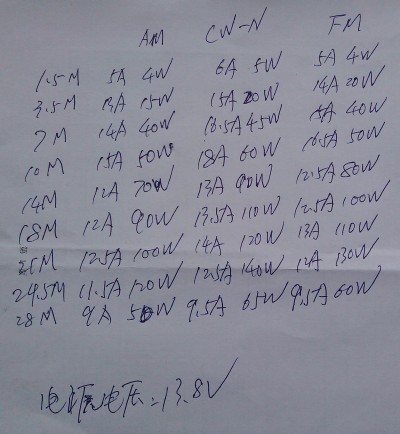 AM CW-N FM
1.5M 5A 4W 6A 5W 5A 4W
3.5M 13A 15W 15A 20W 14A 20W
7M 14A 40W 16.5A 45W 15A 40W
10M 15A 50W 18A 60W 16.5A 50W
14M 12A 70W 13A 90W 12.5A 80W
18M 12A 90W 13.5A 110W 12.5A 100W
21M 12.5A 100W 14A 120W 13A 110W
24.5M 11.5A 120W 12.5A 140W 12A 130W
28M 9A 50W 9.5A 65W 9.5A 60W
电源电压=13.8V